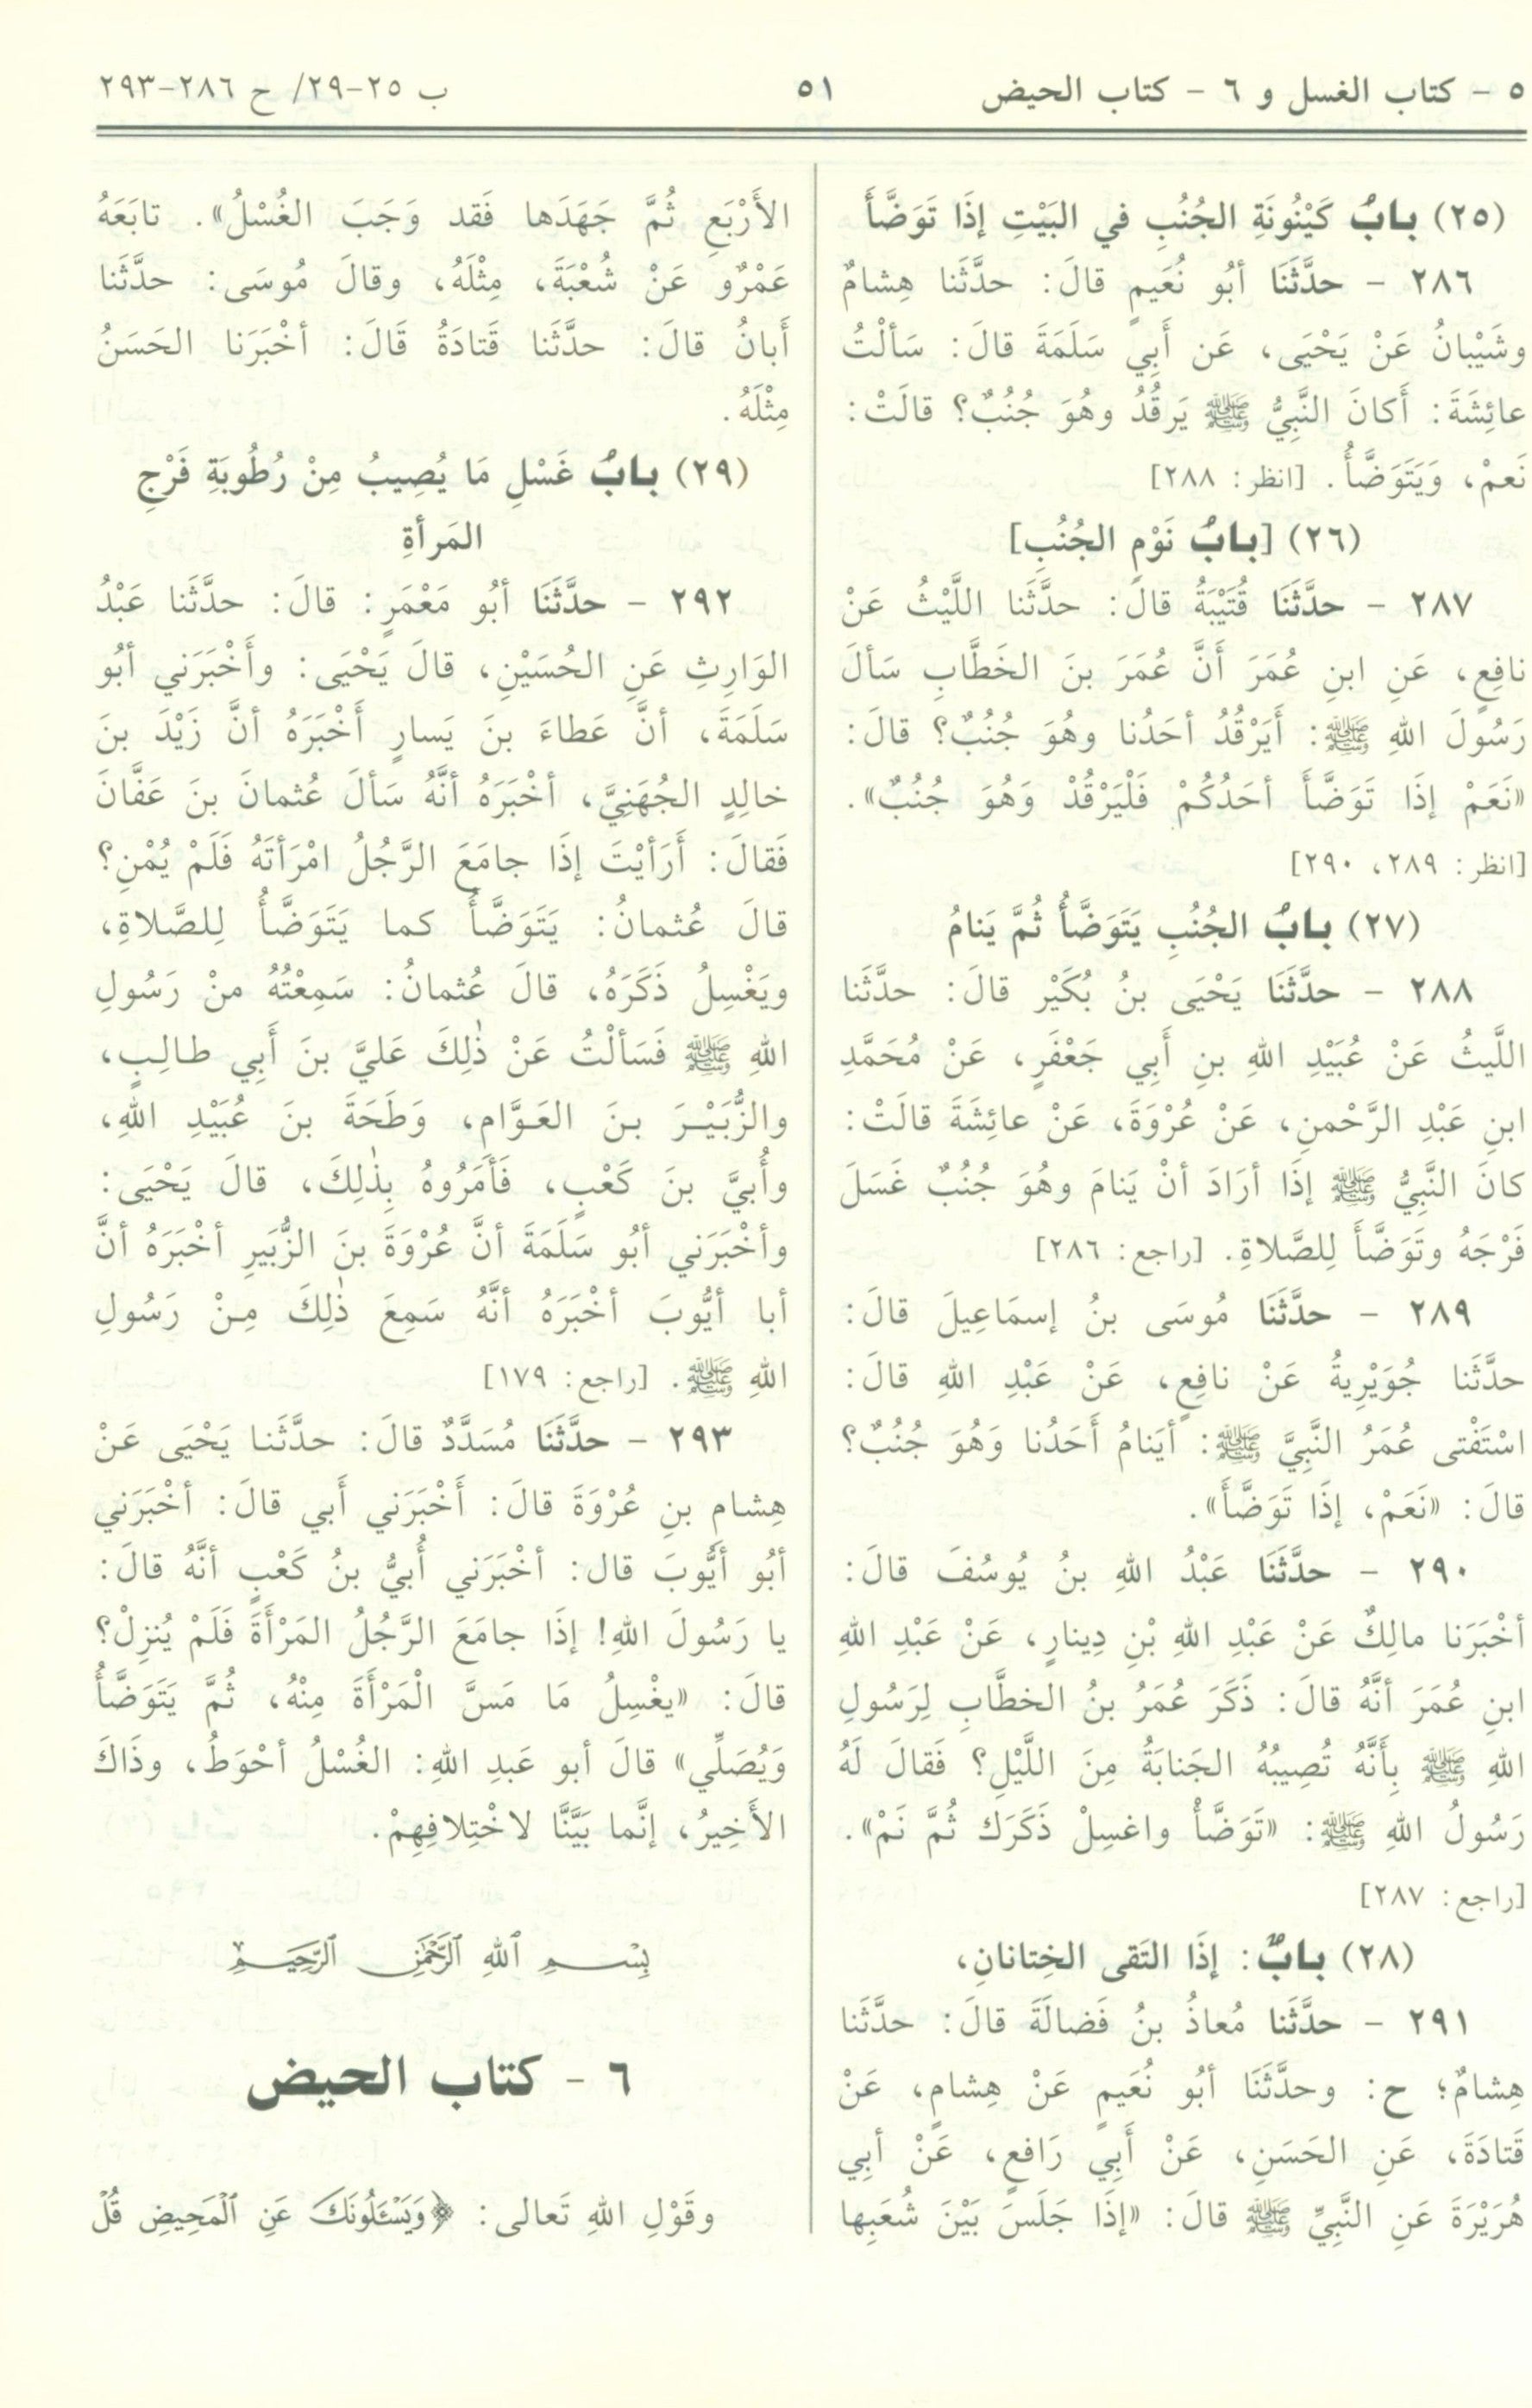 ٥ - كتاب الغسل و ٦ - كتاب الحيض
٥١
ب ٢٥-٢٩/ ح ٢٨٦-٢٩٣
(٢٥) بابُ كَيْنُونَةِ الجُنُبِ في البَيْتِ إذَا تَوَضَّأَ
٢٨٦ - حدَّثَنَا أبُو نُعَيمٍ قالَ: حدَّثَنا هِشامٌ
وشَيْبانُ عَنْ يَحْيَى، عَن أَبِي سَلَمَةَ قالَ: سَألْتُ
عائِشَةَ: أَكانَ النَّبِيُّ ﷺ يَرقُدُ وهُوَ جُنُبٌ؟ قالَتْ:
نَعمْ، وَيَتَوَضَّأُ. [انظر: ٢٨٨]
(٢٦) [بابُ نَوْمِ الجُنُبِ]
٢٨٧ - حدَّثَنَا قُتَيْبَةُ قالَ: حدَّثَنا اللَّيْثُ عَنْ
نافِعٍ، عَنِ ابنِ عُمَرَ أَنَّ عُمَرَ بنَ الخَطَّابِ سَألَ
رَسُولَ اللهِ ﷺ: أَيَرْقُدُ أحَدُنا وهُوَ جُنُبٌ؟ قالَ:
«نَعَمْ إذَا تَوَضَّأَ أحَدُكُمْ فَلْيَرْقُدْ وَهُوَ جُنُبٌ».
[انظر: ٢٨٩، ٢٩٠]
(٢٧) بابُ الجُنُبِ يَتَوَضَّأُ ثُمَّ يَنامُ
٢٨٨ - حدَّثَنَا يَحْيَى بنُ بُكَيْر قالَ: حدَّثَنَا
اللَّيثُ عَنْ عُبَيْدِ اللهِ بنِ أَبِي جَعْفَرٍ، عَنْ مُحَمَّدِ
ابنِ عَبْدِ الرَّحْمنِ، عَنْ عُرْوَةَ، عَنْ عائِشَةَ قالَتْ:
كانَ النَّبِيُّ ﷺ إذَا أرَادَ أنْ يَنامَ وهُوَ جُنُبٌ غَسَلَ
فَرْجَهُ وتَوَضَّأَ لِلصَّلاةِ. [راجع: ٢٨٦]
٢٨٩ - حدَّثَنَا مُوسَى بنُ إسمَاعِيلَ قالَ:
حدَّثَنا جُوَيْرِيةُ عَنْ نافِعٍ، عَنْ عَبْدِ اللهِ قالَ:
اسْتَفْتى عُمَرُ النَّبِيَّ ﷺ: أيَنامُ أَحَدُنا وَهُوَ جُنُبٌ؟
قالَ: «نَعَمْ، إذَا تَوَضَّأَ».
٢٩٠ - حدَّثَنَا عَبْدُ اللهِ بنُ يُوسُفَ قالَ:
أخْبَرَنا مالِكٌ عَنْ عَبْدِ اللهِ بْنِ دِينارٍ، عَنْ عَبْدِ اللهِ
ابنِ عُمَرَ أنَّهُ قالَ: ذَكَرَ عُمَرُ بنُ الخطَّابِ لِرَسُولِ
اللهِ ﷺ بِأَنَّهُ تُصِيبُهُ الجَنابَةُ مِنَ اللَّيْلِ؟ فَقالَ لَهُ
رَسُولُ اللهِ ﷺ: «تَوَضَّأْ واغسِلْ ذَكَرَك ثُمَّ نَمْ».
[راجع: ٢٨٧]
(٢٨) بابٌ: إذَا التَقى الخِتانانِ،
٢٩١ - حدَّثَنا مُعاذُ بنُ فَضالَةَ قالَ: حدَّثَنا
هِشامٌ؛ ح: وحدَّثَنَا أبُو نُعَيمٍ عَنْ هِشامٍ، عَنْ
قَتادَةَ، عَنِ الحَسَنِ، عَنْ أَبِي رَافعٍ، عَنْ أبِي
هُرَيْرَةَ عَنِ النَّبِيِّ ﷺ قالَ: «إذَا جَلَسَ بَيْنَ شُعَبِها
الأَرْبَعِ ثُمَّ جَهَدَها فَقد وَجَبَ الغُسْلُ». تابَعَهُ
عَمْرٌو عَنْ شُعْبَةَ، مِثْلَهُ، وقالَ مُوسَى: حدَّثَنا
أَبانُ قالَ: حدَّثَنا قَتادَةُ قَالَ: أخْبَرَنا الحَسَنُ
مِثْلَهُ.
(٢٩) بابُ غَسْلِ مَا يُصِيبُ مِنْ رُطُوبَةِ فَرْجِ
المَرأةِ
٢٩٢ - حدَّثَنَا أبُو مَعْمَرٍ: قالَ: حدَّثَنا عَبْدُ
الوَارِثِ عَنِ الحُسَيْنِ، قالَ يَحْيَى: وأَخْبَرَني أبُو
سَلَمَةَ، أنَّ عَطاءَ بنَ يَسارٍ أَخْبَرَهُ أنَّ زَيْدَ بنَ
خالِدٍ الجُهَنِيَّ، أخْبَرَهُ أنَّهُ سَألَ عُثمانَ بنَ عَفَّانَ
فَقالَ: أَرَأيْتَ إذَا جامَعَ الرَّجُلُ امْرَأتَهُ فَلَمْ يُمْنِ؟
قالَ عُثمانُ: يَتَوَضَّأُ كما يَتَوَضَّأُ لِلصَّلاةِ،
ويَغْسِلُ ذَكَرَهُ، قالَ عُثمانُ: سَمِعْتُهُ منْ رَسُولِ
اللهِ ﷺ فَسَألْتُ عَنْ ذٰلِكَ عَليَّ بنَ أَبِي طالِبٍ،
والزُّبَيْـرَ بـنَ العَـوَّامِ، وَطَحَةَ بنَ عُبَيْدِ اللهِ،
وأُبيَّ بنَ كَعْبٍ، فَأمَرُوهُ بِذٰلِكَ، قالَ يَحْيَى:
وأخْبَرَني أبُو سَلَمَةَ أنَّ عُرْوَةَ بنَ الزُّبَيرِ أخْبَرَهُ أنَّ
أبا أيُّوبَ أخْبَرَهُ أنَّهُ سَمِعَ ذٰلِكَ مِـنْ رَسُولِ
اللهِ ﷺ. [راجع: ١٧٩]
٢٩٣ - حدَّثَنَا مُسَدَّدٌ قالَ: حدَّثَنـا يَحْيَى عَنْ
هِشامِ بنِ عُرْوَةَ قالَ: أَخْبَرَني أَبي قالَ: أخْبَرَني
أبُو أيُّوبَ قال: أخْبَرَني أُبيُّ بنُ كَعْبٍ أنَّهُ قالَ:
يا رَسُولَ اللهِ! إذَا جامَعَ الرَّجُلُ المَرْأَةَ فَلَمْ يُنزِلْ؟
قالَ: «يغْسِلُ مَا مَسَّ الْمَرْأَةَ مِنْهُ، ثُمَّ يَتَوَضَّأُ
وَيُصَلِّي» قالَ أبو عَبدِ اللهِ: الغُسْلُ أحْوَطُ، وذَاكَ
الأَخِيرُ، إنَّما بَيَّنَّا لاخْتِلافِهِمْ.
بِسْمِ ٱللهِ ٱلرَّحْمَٰنِ ٱلرَّحِيمِ
٦ - كتاب الحيض
وقَوْلِ اللهِ تَعالى: ﴿وَيَسْـَٔلُونَكَ عَنِ ٱلْمَحِيضِ قُلْ